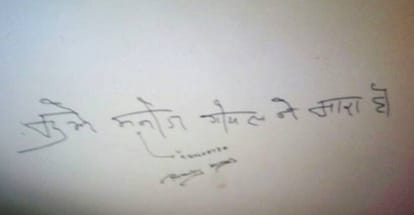 मुझे मनोज गोयल ने मारा है